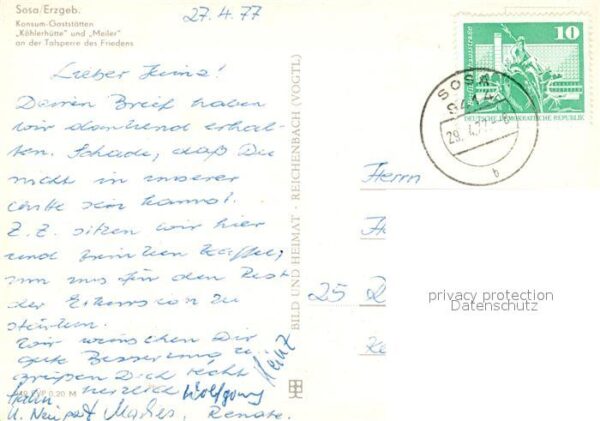 Sosa/Erzgeb.
Konsum-Gaststätten
„Köhlerhütte" und „Meiler"
an der Talsperre des Friedens
27.4.77
Lieber Heinz!
Deinen Brief haben
wir dankend erhal-
ten. Schade, daß Du
nicht in unserer
Mitte sein kannst.
Z. Z. sitzen wir hier
und trinken Kaffee,
um uns für den Rest
der Exkursion zu
stärken.
Wir wünschen Dir
gute Besserung u.
grüßen Dich recht
herzlich Wolfgang
Heinz
Renate
EVP 0,20 M
BILD UND HEIMAT · REICHENBACH (VOGTL)
10
DEUTSCHE DEMOKRATISCHE REPUBLIK
SOSA
Herrn
25
privacy protection
Datenschutz